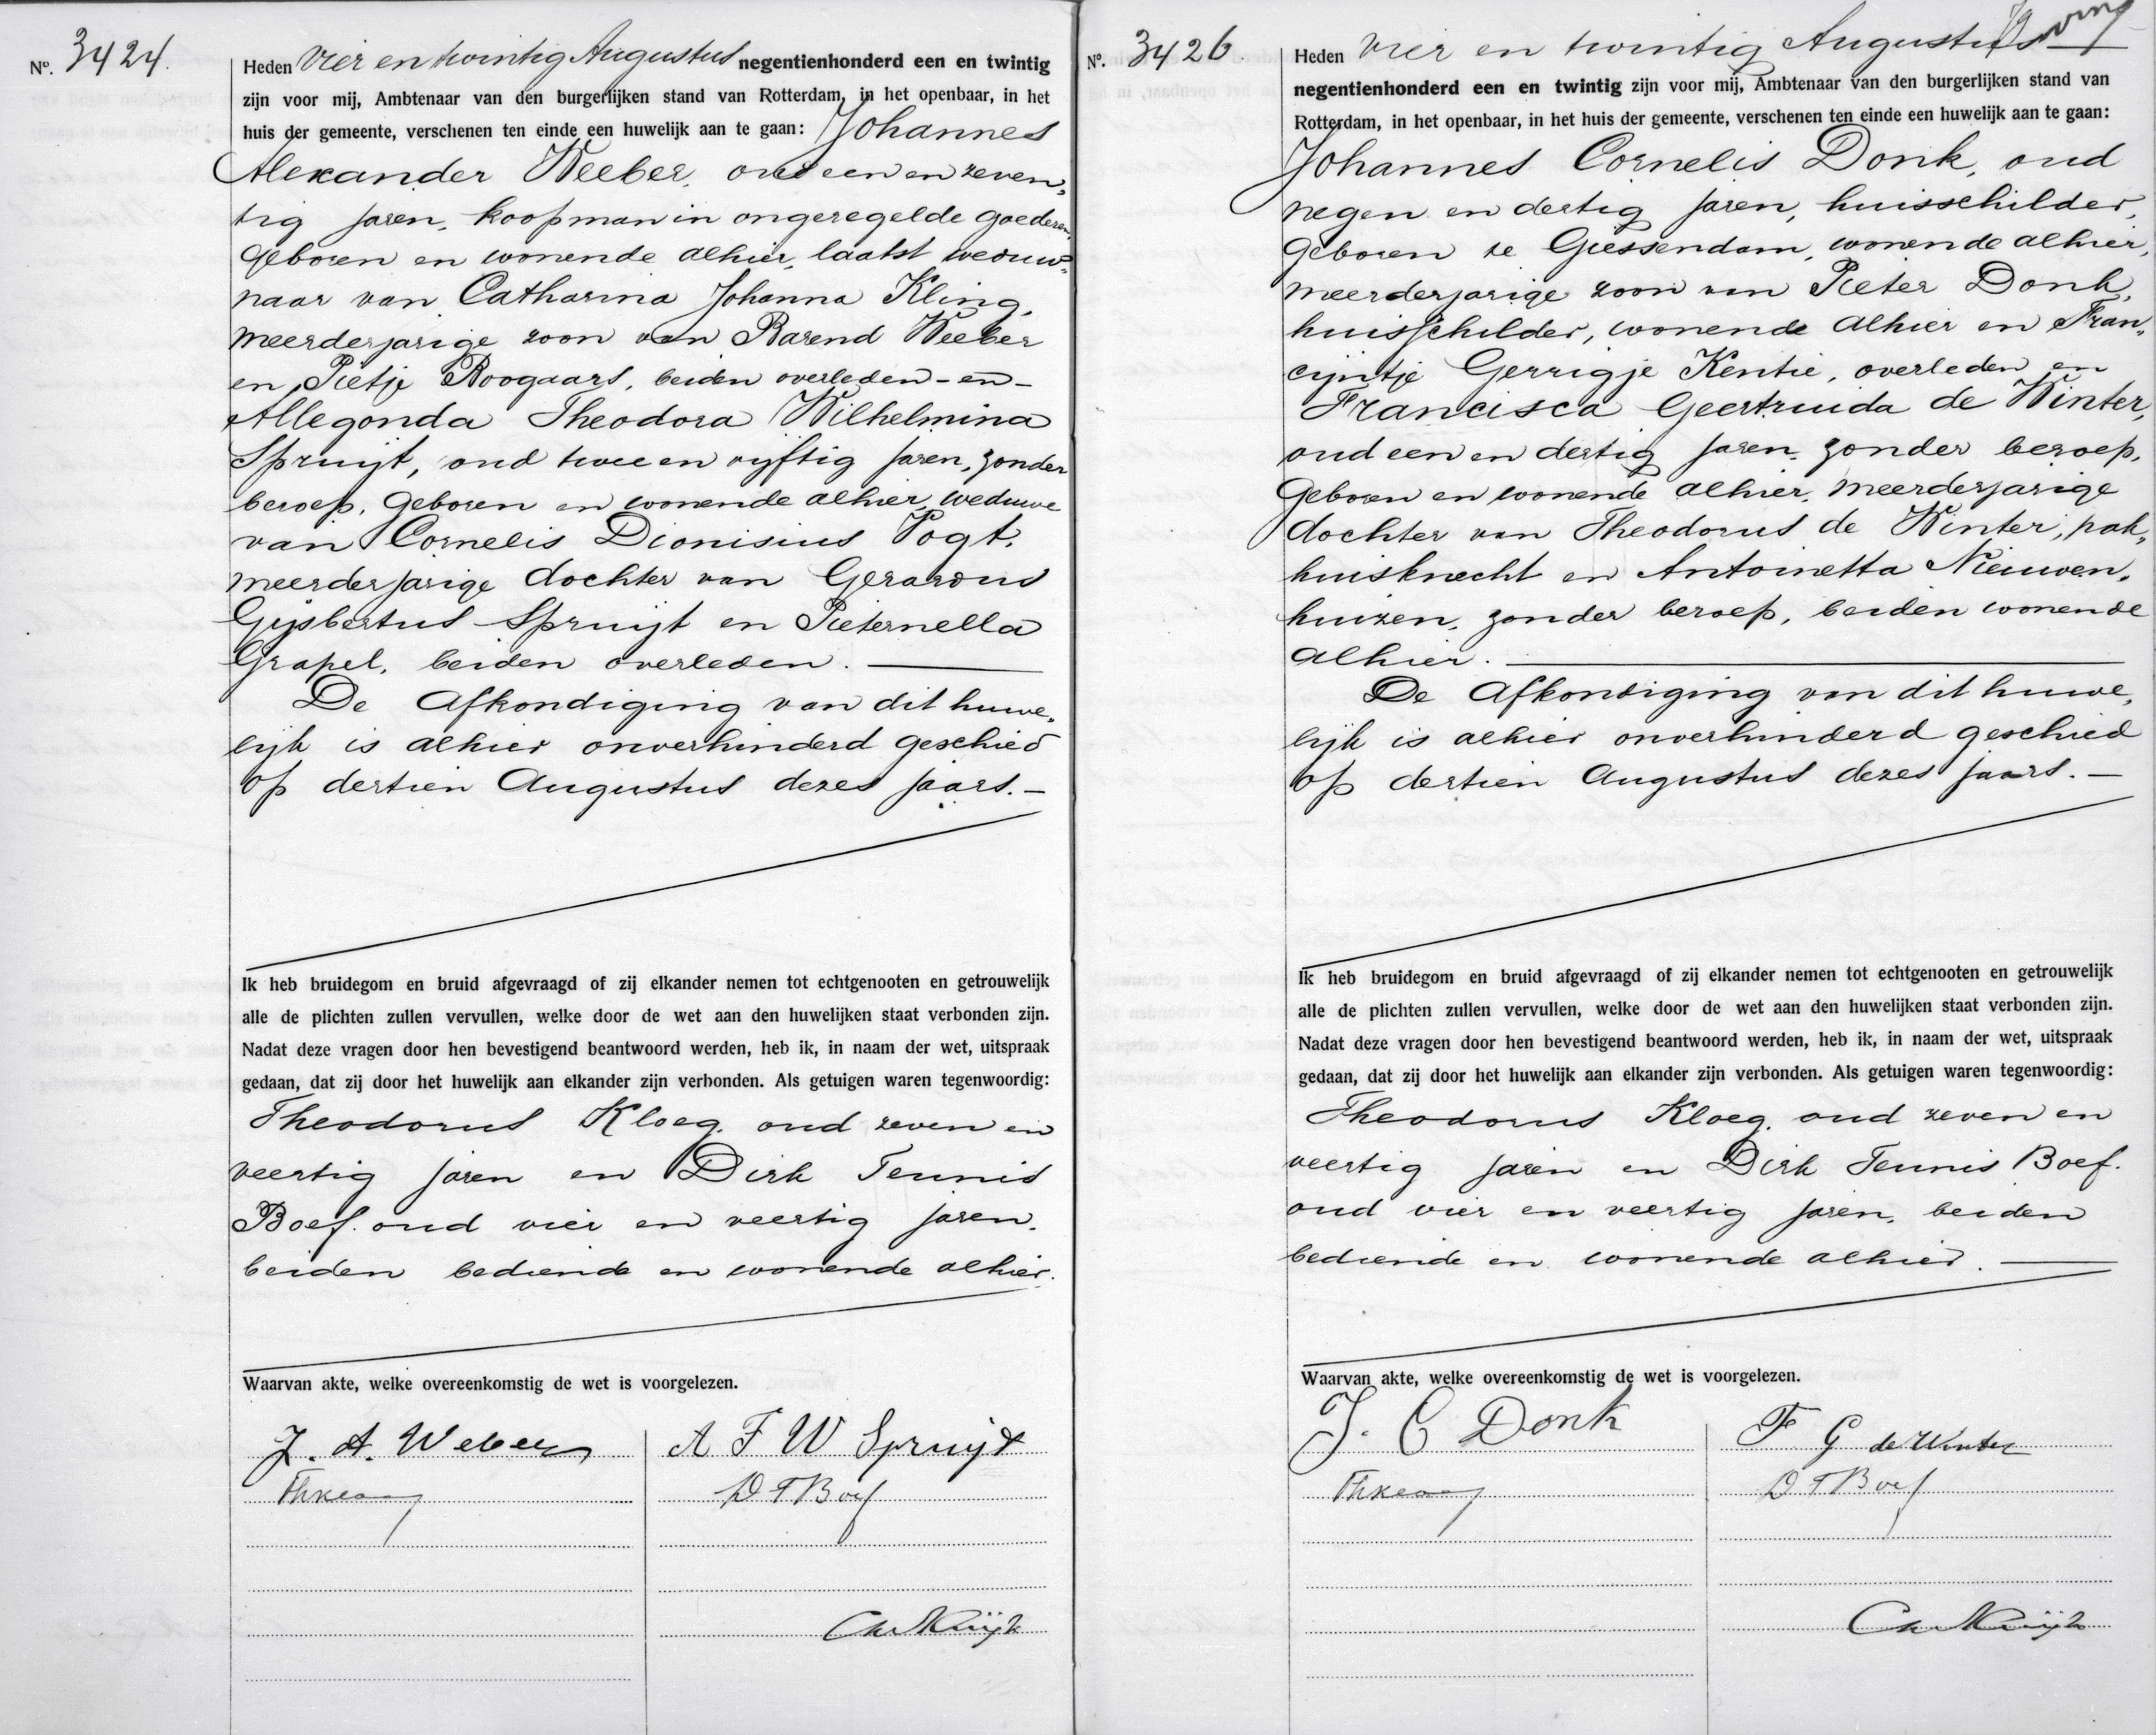 No. 3424.
Heden vier en twintig Augustus negentienhonderd een en twintig
zijn voor mij, Ambtenaar van den burgerlijken stand van Rotterdam, in het openbaar, in het
huis der gemeente, verschenen ten einde een huwelijk aan te gaan: Johannes
Alexander Weeber, oud een en zeven„
tig jaren, koopman in ongeregelde goederen,
geboren en wonende alhier, laatst weduw„
naar van Catharina Johanna Kling,
meerderjarige zoon van Barend Weeber
en Pietje Boogaars, beiden overleden - en -
Allegonda Theodora Wilhelmina
Spruijt, oud twee en vijftig jaren, zonder
beroep, geboren en wonende alhier, weduwe
van Cornelis Dionisius Vogt,
meerderjarige dochter van Gerardus
Gijsbertus Spruijt en Pieternella
Grapel, beiden overleden.
De afkondiging van dit huwe„
lijk is alhier onverhinderd geschied
op dertien Augustus dezes jaars. -
Ik heb bruidegom en bruid afgevraagd of zij elkander nemen tot echtgenooten en getrouwelijk
alle de plichten zullen vervullen, welke door de wet aan den huwelijken staat verbonden zijn.
Nadat deze vragen door hen bevestigend beantwoord werden, heb ik, in naam der wet, uitspraak
gedaan, dat zij door het huwelijk aan elkander zijn verbonden. Als getuigen waren tegenwoordig:
Theodorus Kloeg, oud zeven en
veertig jaren en Dirk Teunis
Boef, oud vier en veertig jaren,
beiden bediende en wonende alhier.
Waarvan akte, welke overeenkomstig de wet is voorgelezen.
J. A. Weber A F W Spruijt
ThKloeg D T Boef
No. 3426.
Heden vier en twintig Augustus
negentienhonderd een en twintig zijn voor mij, Ambtenaar van den burgerlijken stand van
Rotterdam, in het openbaar, in het huis der gemeente, verschenen ten einde een huwelijk aan te gaan:
Johannes Cornelis Donk, oud
negen en dertig jaren, huisschilder,
geboren te Giessendam, wonende alhier,
meerderjarige zoon van Pieter Donk,
huisschilder, wonende alhier en Fran„
cijntje Gerrigje Kentie, overleden en
Francisca Geertruida de Winter,
oud een en dertig jaren, zonder beroep,
geboren en wonende alhier, meerderjarige
dochter van Theodorus de Winter, pak„
huisknecht en Antoinetta Nieuwen„
huizen, zonder beroep, beiden wonende
alhier.
De afkondiging van dit huwe„
lijk is alhier onverhinderd geschied
op dertien Augustus dezes jaars. -
Ik heb bruidegom en bruid afgevraagd of zij elkander nemen tot echtgenooten en getrouwelijk
alle de plichten zullen vervullen, welke door de wet aan den huwelijken staat verbonden zijn.
Nadat deze vragen door hen bevestigend beantwoord werden, heb ik, in naam der wet, uitspraak
gedaan, dat zij door het huwelijk aan elkander zijn verbonden. Als getuigen waren tegenwoordig:
Theodorus Kloeg, oud zeven en
veertig jaren en Dirk Teunis Boef,
oud vier en veertig jaren, beiden
bediende en wonende alhier.
Waarvan akte, welke overeenkomstig de wet is voorgelezen.
J. C Donk F G de Winter
ThKloeg D T Boef